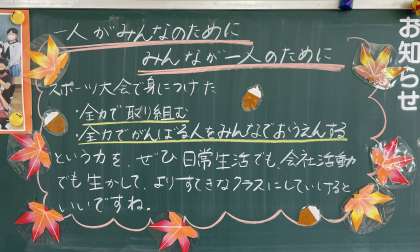 お知らせ
一人がみんなのために
みんなが一人のために
スポーツ大会で身につけた
・全力で取り組む
・全力でがんばる人をみんなでおうえんする
という力を、ぜひ日常生活でも、会社活動
でも生かして、よりすてきなクラスにしていけると
いいですね。